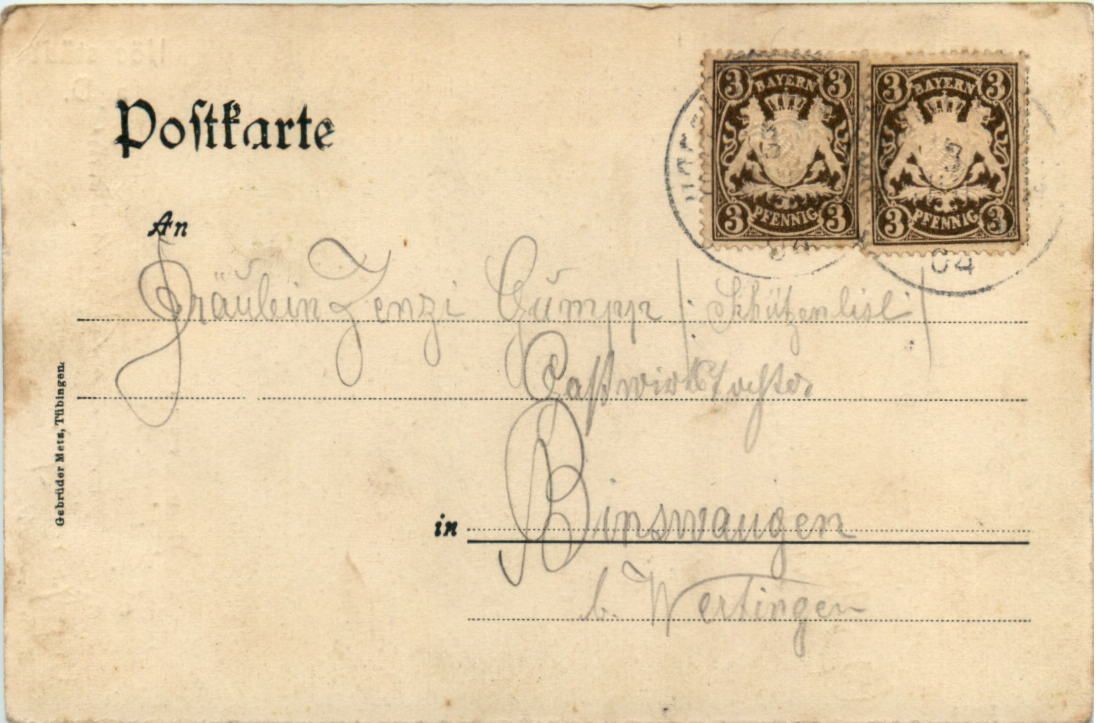 Postkarte
3 BAYERN 3
3 PFENNIG 3
3 BAYERN 3
3 PFENNIG 3
04
An
Fräulein Zenzi Gumpp / Schützenlisl /
Gastwirtstochter
in Binswangen
b. Wertingen
Gebrüder Metz, Tübingen.